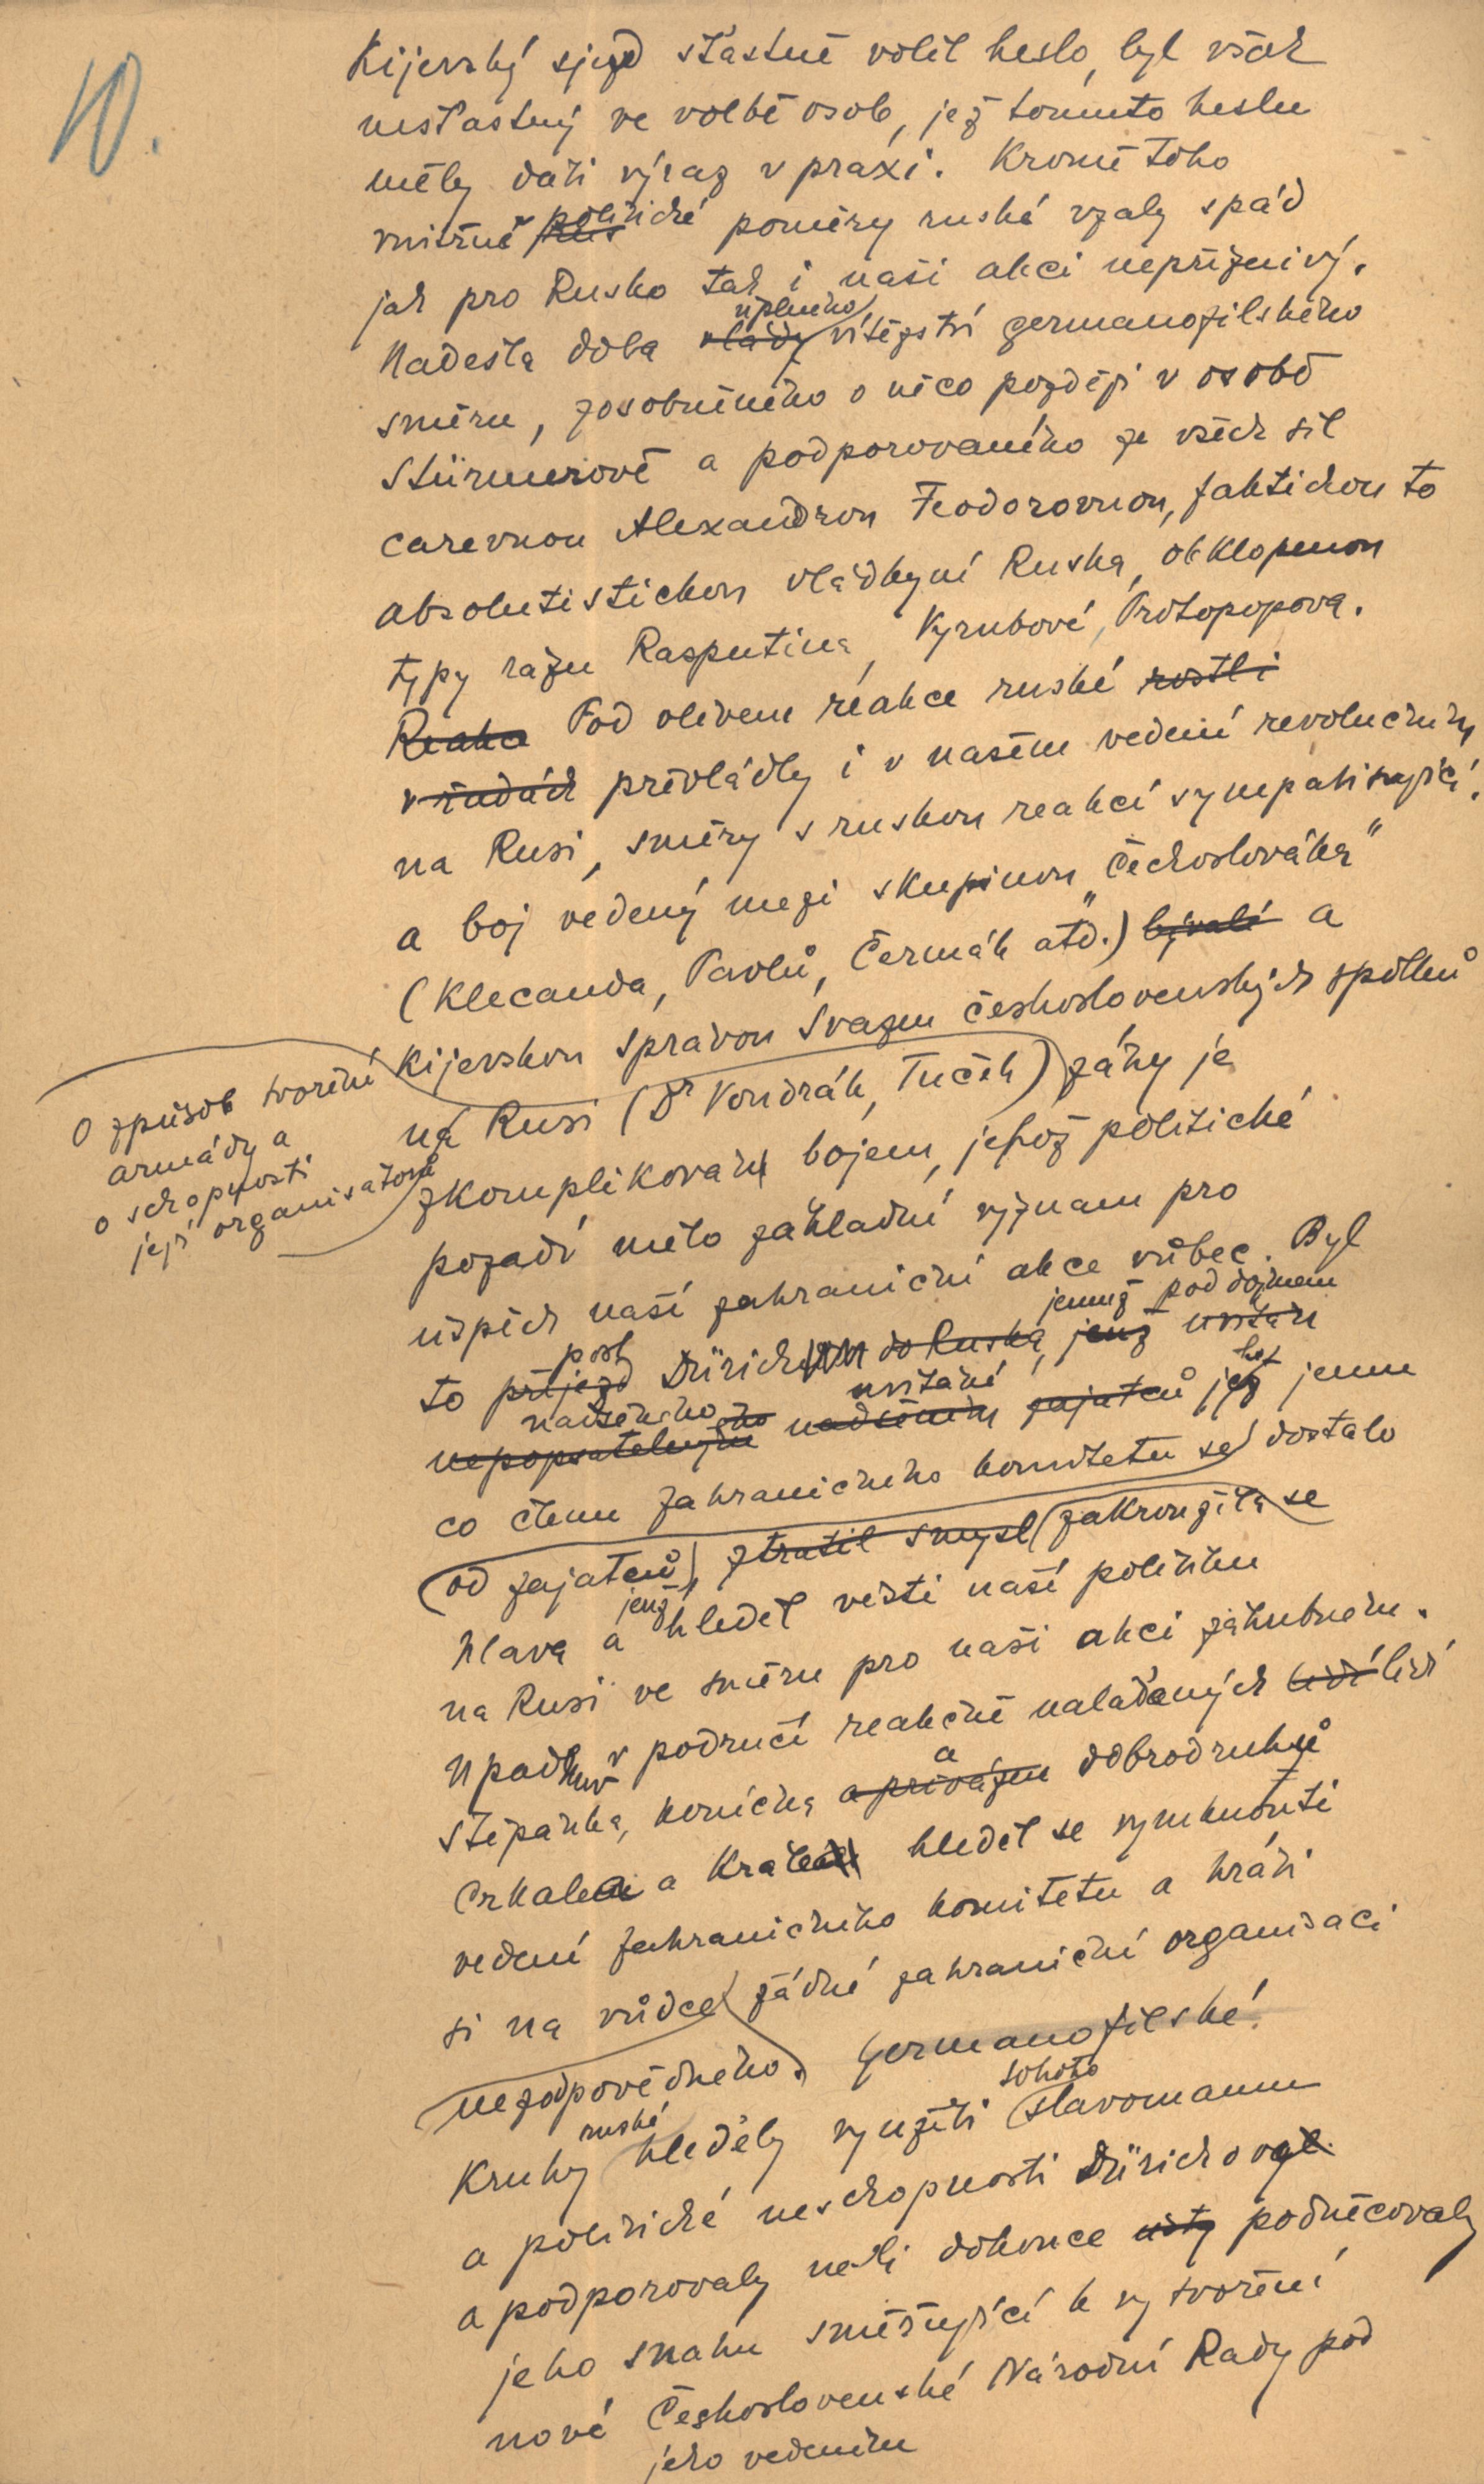 10.
Kijevský sjezd šťastně volil heslo, byl však
nešťastný ve volbě osob, jež tomuto heslu
měly dáti výraz v praxi. Kromě toho
vnitřně politické poměry ruské vzaly spád
jak pro Rusko tak i naši akci nepříznivý.
úplného
Nadešla doba vlády vítězství germanofilského
směru, zosobněného o něco později v osobě
Stürmerově a podporovaného ze všech sil
carevnou Alexandrou Feodorovnou, faktickou to
absolutistickou vládkyní Ruska, obklopenou
typy rázu Rasputina, Vyrubové, Protopopova.
Reakce Pod vlivem reakce ruské rostli
v řadách převládly i v našem vedení revolučním
na Rusi, směry s ruskou reakcí sympatisující.
a boj vedený mezi skupinou „Čechoslováka"
(Klecanda, Pavlů, Čermák atd.) bývalé a
Kijevskou správou Svazu československých spolků
na Rusi (Dr Vondrák, Tuček) záhy je
O způsob tvoření
armády a
o schopnosti
její organisátorů
zkomplikován bojem, jehož politické
pozadí mělo základní význam pro
úspěch naší zahraniční akce vůbec. Byl
jemuž pod dojmem
to příjezd Dürich do Ruska, jenž uvítán
posl.
nadšeného uvítání
nepopsatelným nadšením zajatců jež jemu
co členu zahraničního komitétu se dostalo
od zajatců, ztratil smysl zakroužila se
hlava a jenž hleděl vésti naší politiku
na Rusi ve směru pro naši akci záhubném.
Upadnuv v područí reakčně naladěných lidí lidí
Štěpánka, Koníčka a přívázen a dobrodruhů
Crkala a Krále hleděl se vymknouti
vedení zahraničního komitétu a hráti
si na vůdce žádné zahraniční organisaci
nezodpovědného. Germanofilské
ruské
tohoto
Kruhy hleděly využíti slavomamu
a politické neschopnosti Dürichovy
a podporovaly ne-li dokonce podněcovaly
jeho snahu směřující k vytvoření
nové Československé Národní Rady pod
jeho vedením